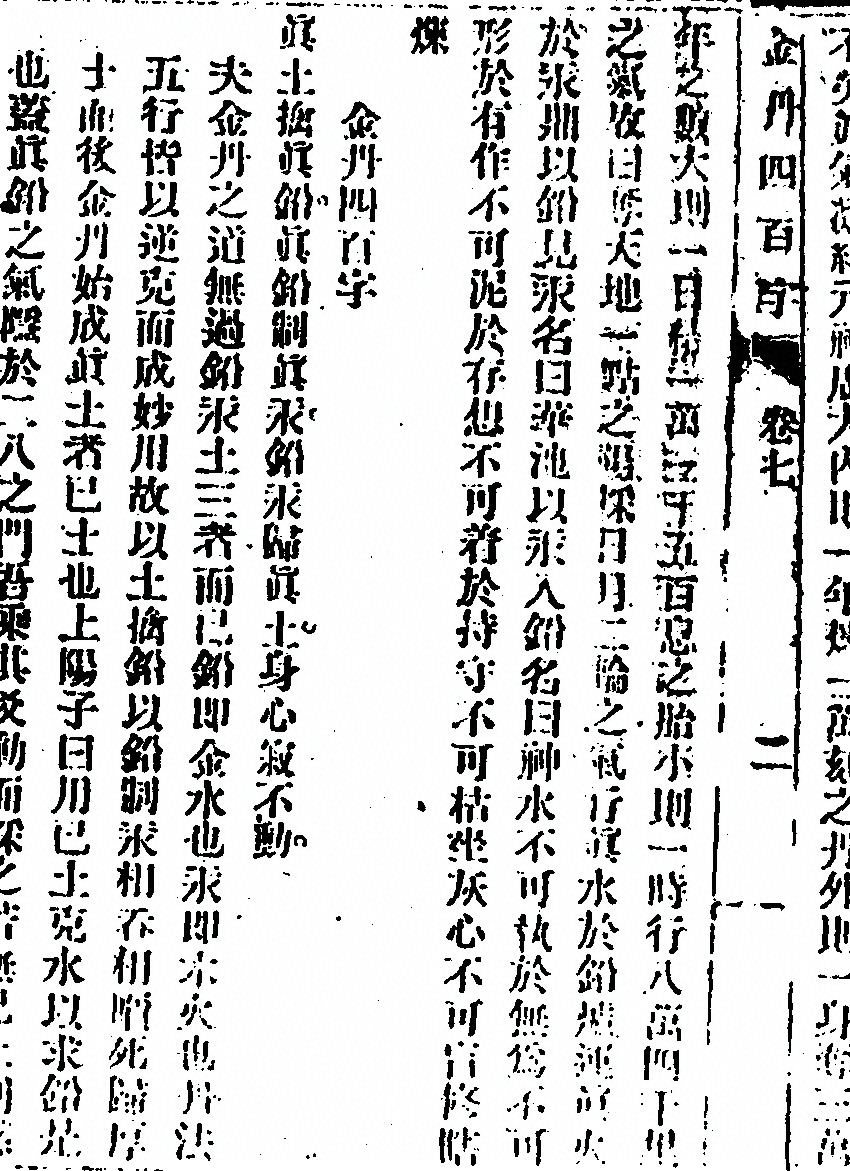 一年
年之數大則一日積一萬三千五百息之胎小則一時行八萬四千里
之氣故曰奪天地一點之陽採日月二輪之氣行眞水於鉛爐運眞火
於汞鼎以鉛見汞名曰華池以汞入鉛名曰神水不可執於無爲不可
形於有作不可泥於存想不可着於持守不可枯坐灰心不可盲修瞎
煉
金丹四百字
眞土擒眞鉛眞鉛制眞汞鉛汞歸眞土身心寂不動
夫金丹之道無過鉛汞土三者而已鉛即金水也汞即木火也丹法
五行皆以逆克而成妙用故以土擒鉛以鉛制汞相吞相啗死歸厚
土而後金丹始成眞土者己土也上陽子曰用己土克水以求鉛是
也蓋眞鉛之氣隱於二八之門吾乘其爻動而採之若無己土
金丹四百字
卷七
二